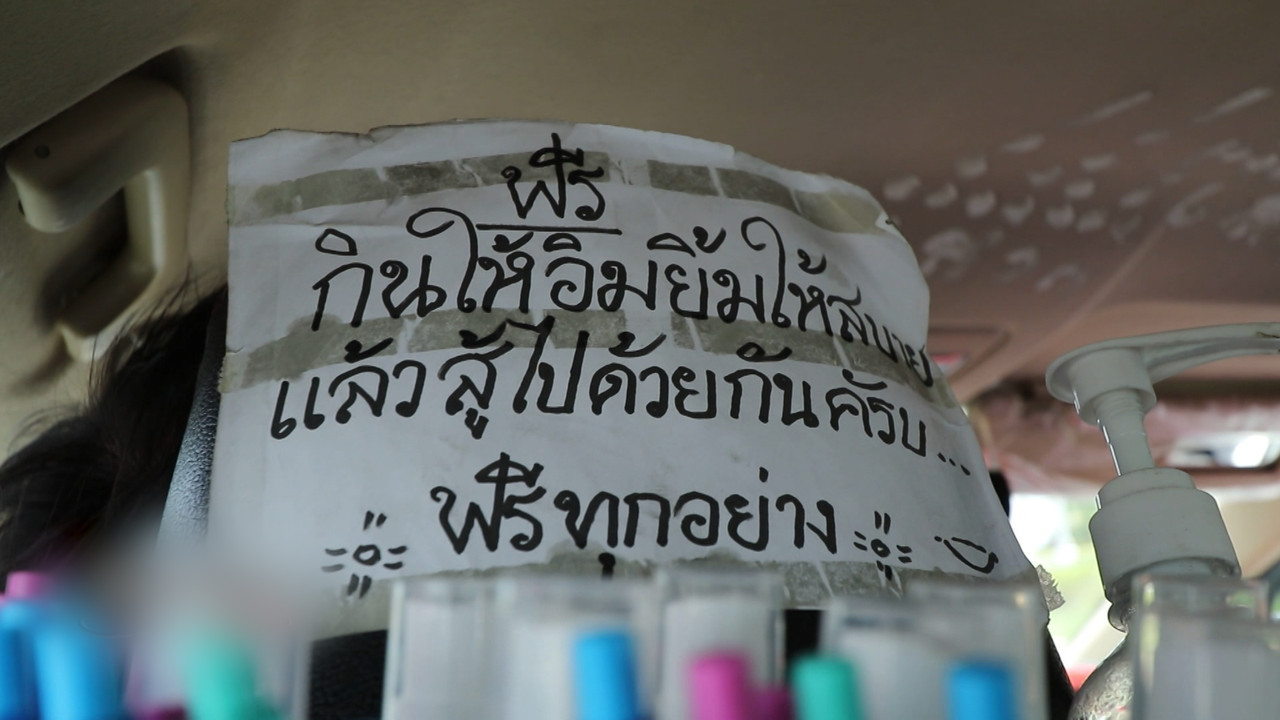 ฟรี
กินให้อิ่มยิ้มให้สบาย
แล้วสู้ไปด้วยกันครับ...
ฟรีทุกอย่าง